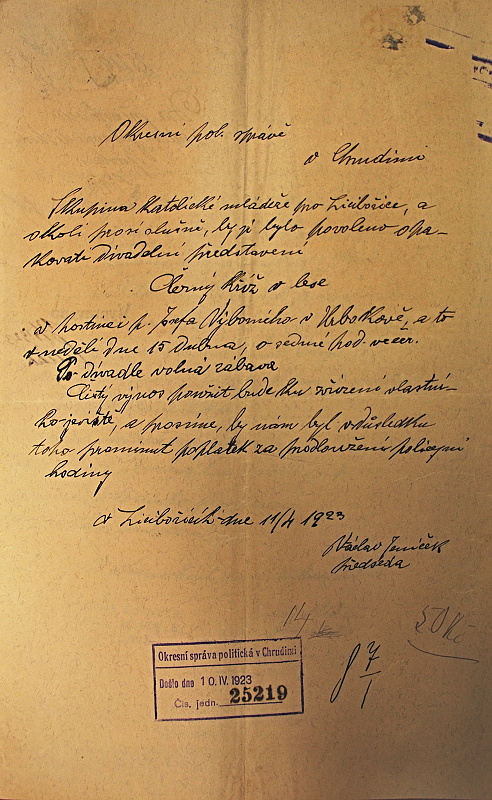 Okresní pol. správě
v Chrudimi
Skupina katolické mládeže pro Licibořice, a
okolí prosí slušně, by jí bylo povoleno opa-
kovati divadelní představení
Černý kříž v lese
v hostinci p. Josefa Výborného v Hrbokově, a to
v neděli dne 15 dubna, o sedmé hod. večer.
Po divadle volná zábava
Čistý výnos použit bude ku zřízení vlastní-
ho jeviště, a prosíme, by nám byl v důsledku
toho prominut poplatek za prodloužení policejní
hodiny
V Licibořicích dne 11/4 1923
Václav Jeníček
předseda
14
50 Kč
7
1
Okresní správa politická v Chrudimi
Došlo dne 10. IV. 1923
Čís. jedn. 25219